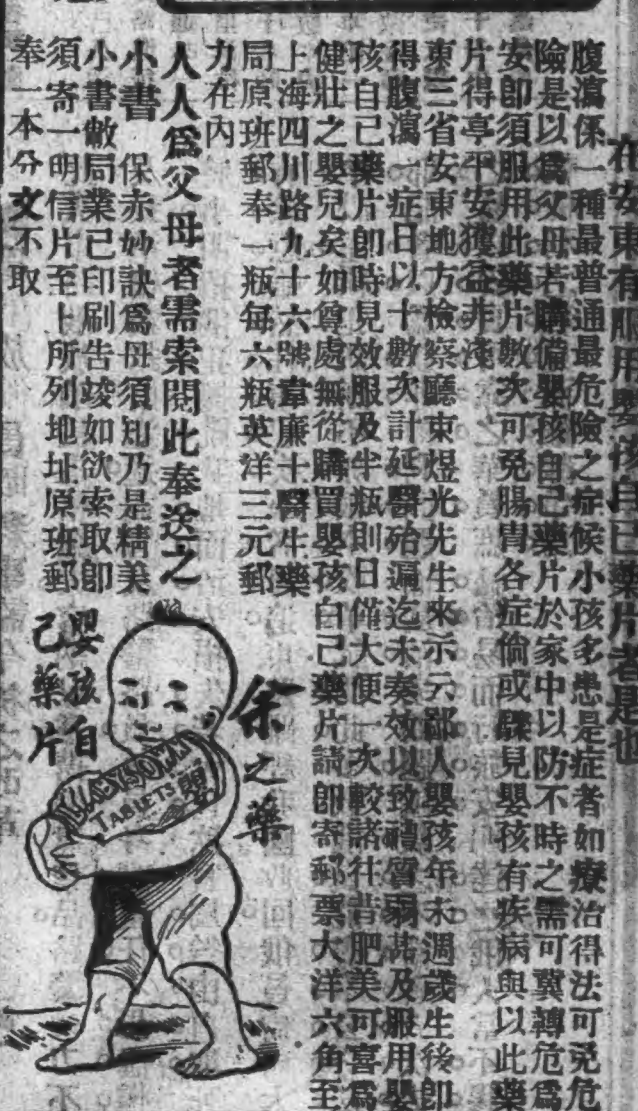 在安東有服用嬰孩自己藥片者是也
腹瀉係一種最普通最危險之症候小孩多患是症者如療治得法可免危
險是以爲父母若購備嬰孩自己藥片於家中以防不時之需可冀轉危爲
安卽須服用此藥片數次可免腸胃各症倘或驟見嬰孩有疾病與以此藥
片得享平安獲益非淺
東三省安東地方檢察廳東煜光先生來示云鄙人嬰孩年未週歲生後卽
得腹瀉一症日以十數次計延醫殆遍迄未奏效以致體質弱甚及服用嬰
孩自己藥片卽時見效服及半瓶則日僅大便一次較諸往昔肥美可喜爲
健壯之嬰兒矣如尊處無從購買嬰孩自己藥片請卽寄郵票大洋六角至
上海四川路九十六號韋廉士醫生藥
局原班郵奉一瓶每六瓶英洋三元郵
力在內
人人爲父母者需索閱此奉送之
小書 保赤妙訣爲母須知乃是精美
小書敝局業已印刷告竣如欲索取卽
須寄一明信片至上所列地址原班郵
奉一本分文不取
余之藥
嬰孩自
己藥片
BABY'S OWN
TABLETS
嬰